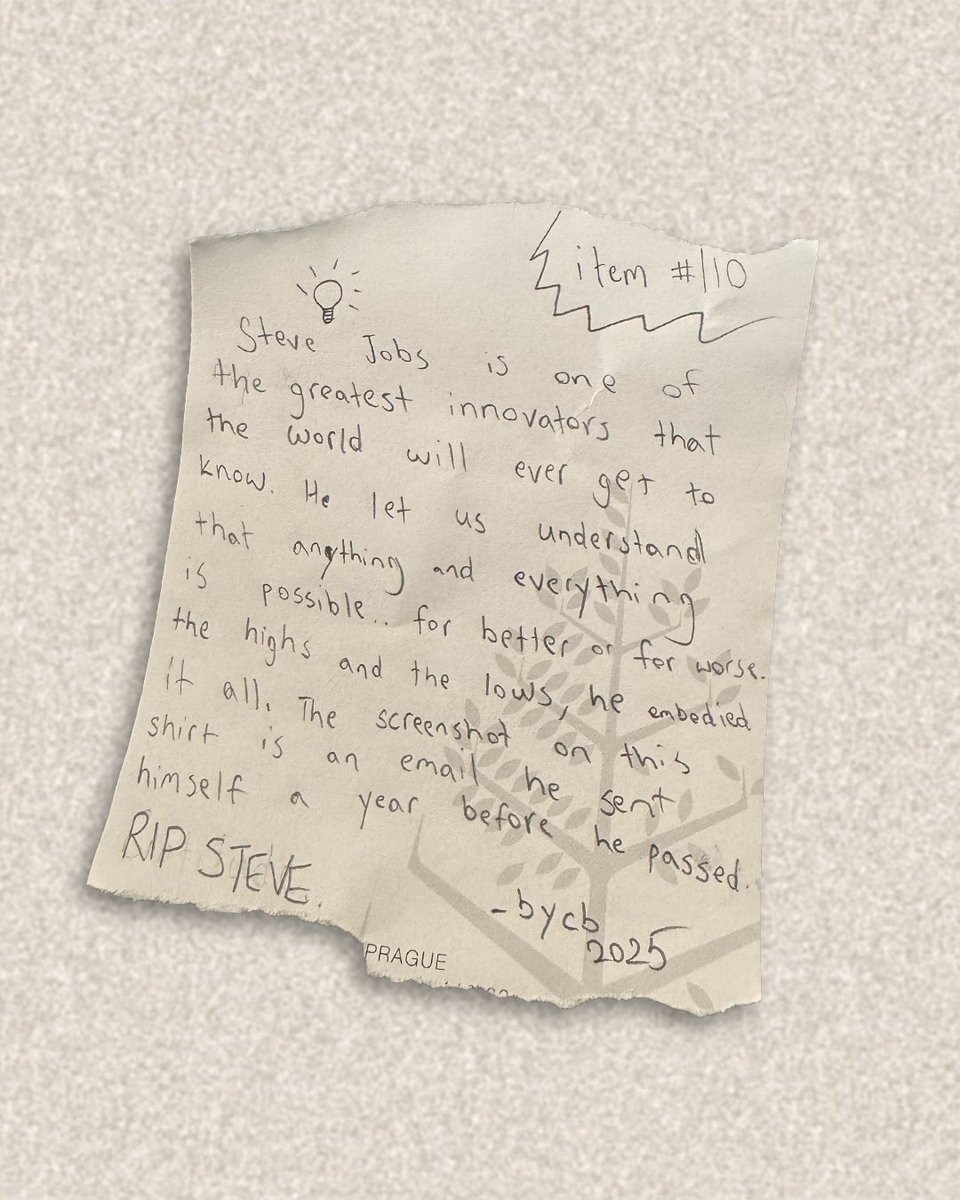 item #110
Steve Jobs is one of
the greatest innovators that
the world will ever get to
know. He let us understand
that anything and everything
is possible.. for better or for worse.
the highs and the lows, he embodied
it all. The screenshot on this
shirt is an email he sent
himself a year before he passed.
RIP STEVE.
-bycb
2025
PRAGUE